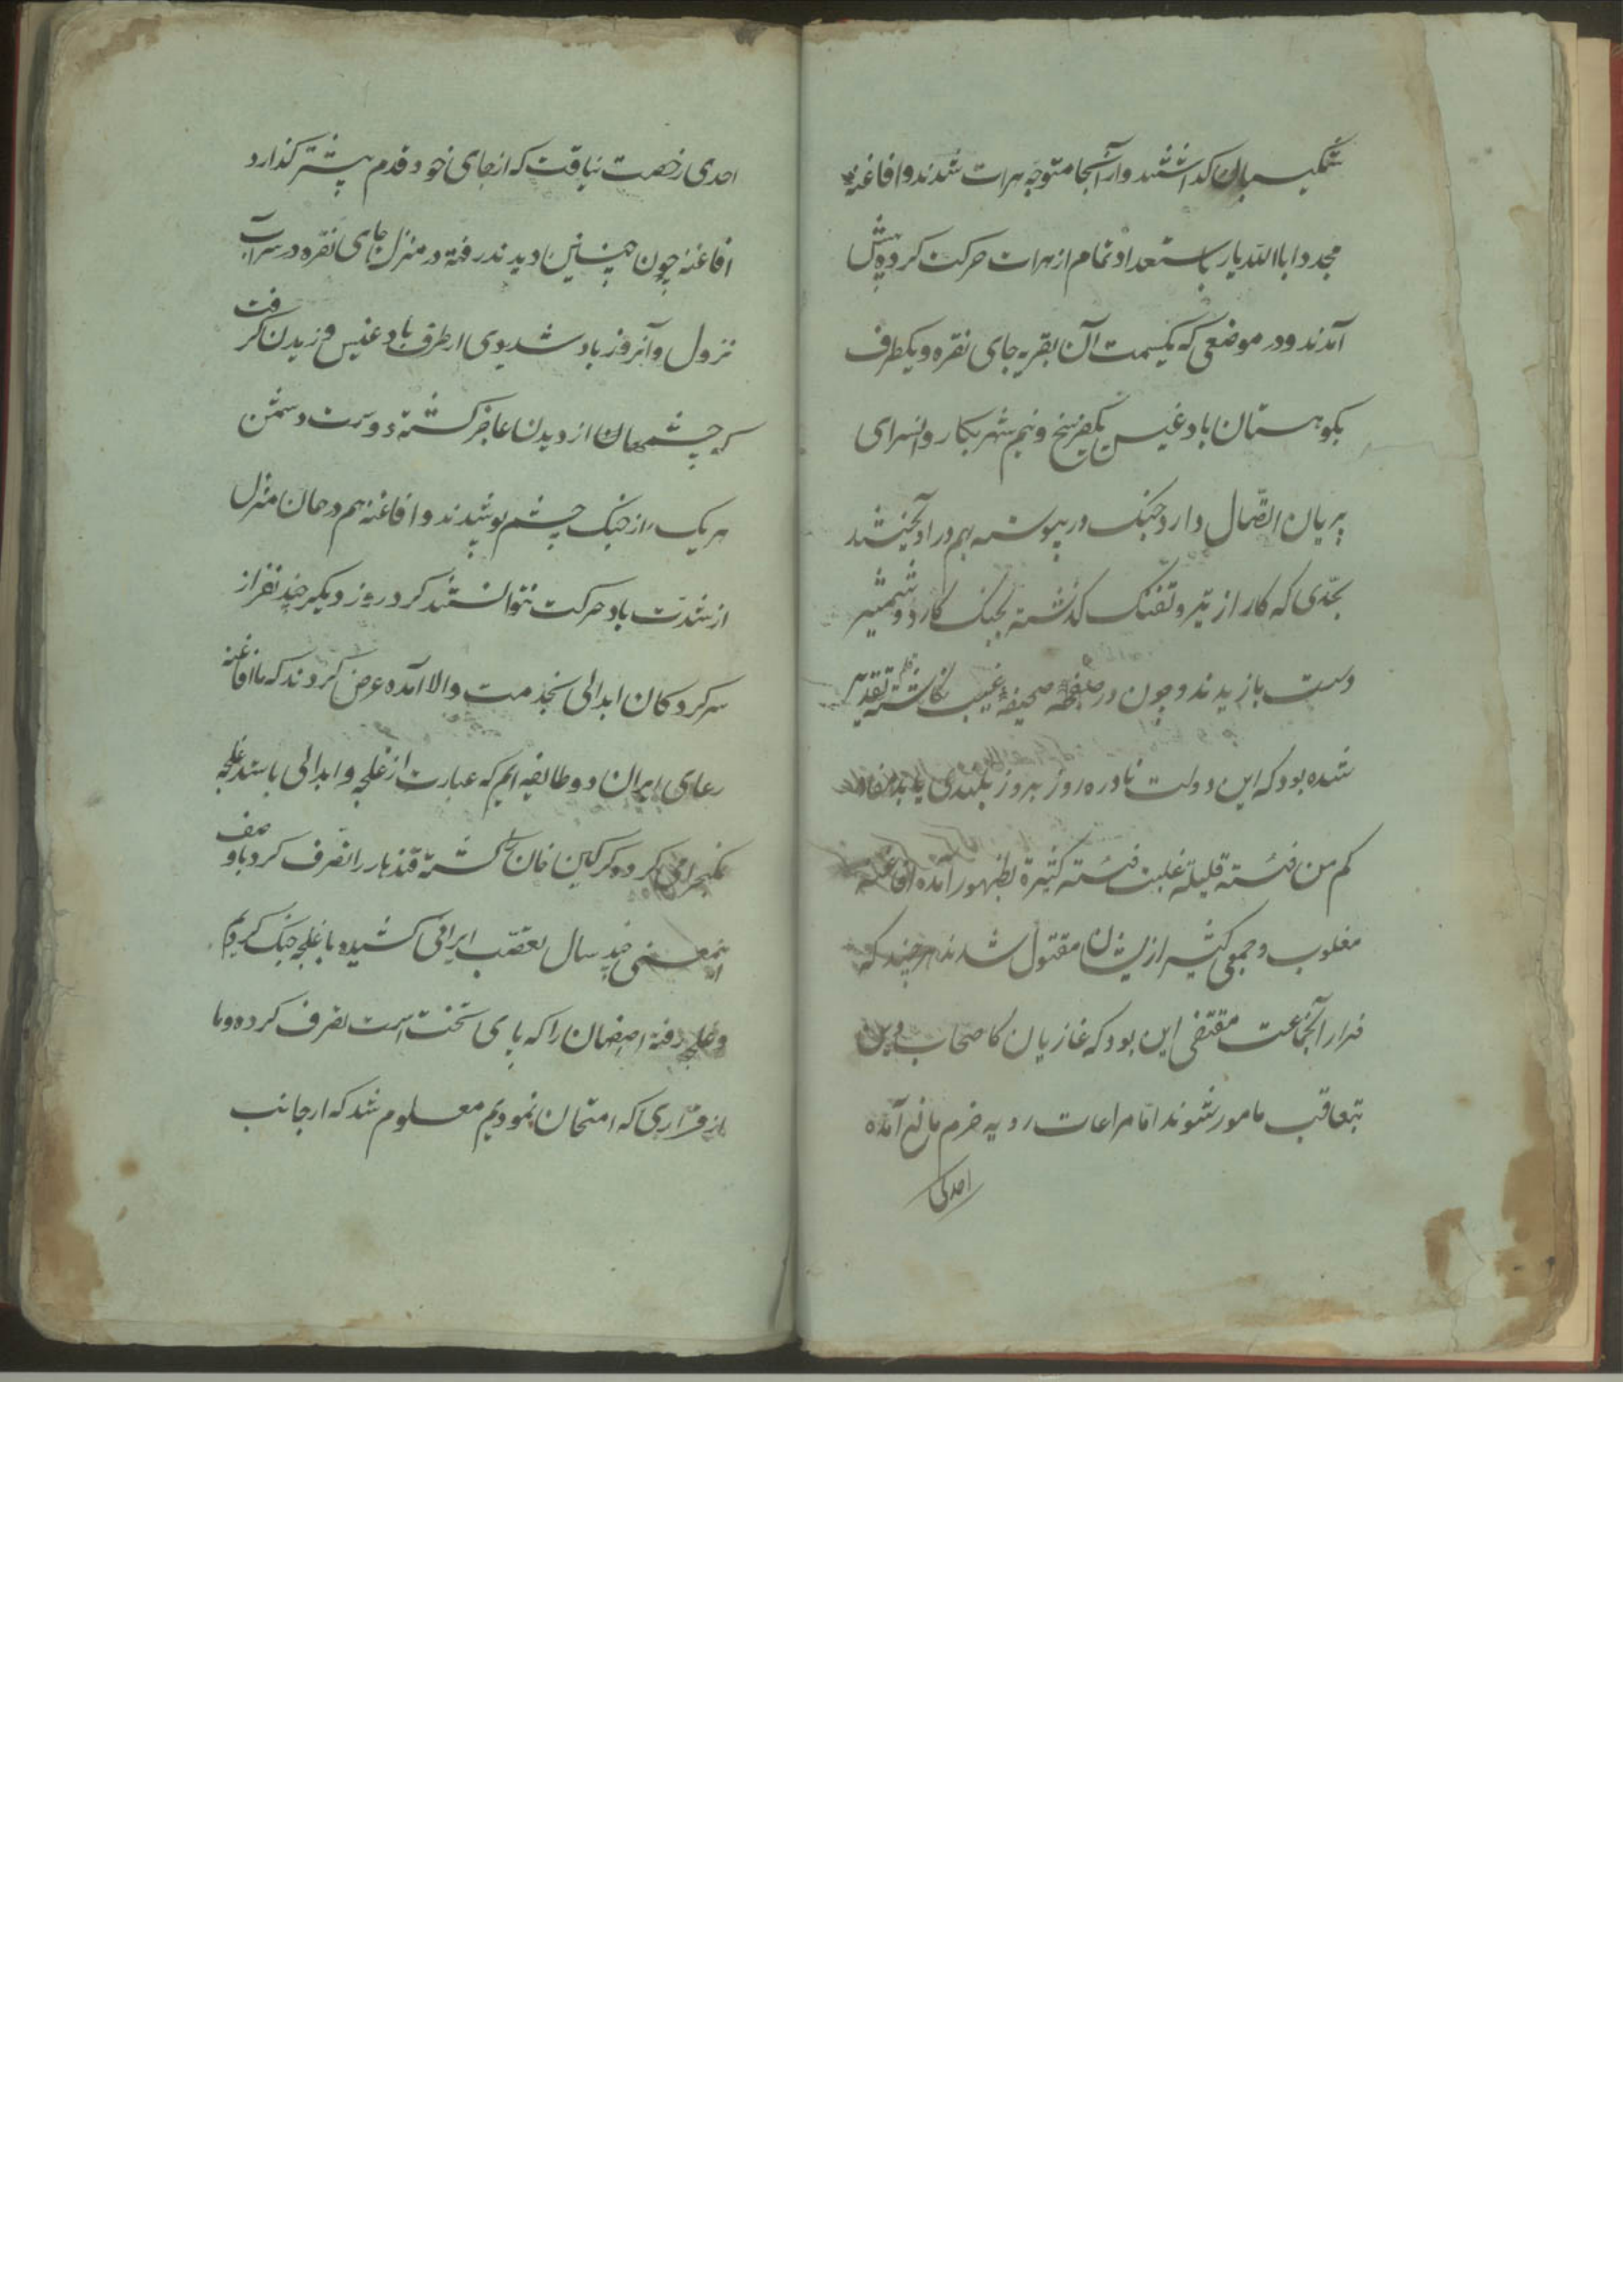 شکیبان گذاشتند و از آنجا متوجه هرات شدند و افاغنه
مجددا با اللدیار باستعداد تمام از هرات حرکت کرده پیش
آمدند و در موضعی که یکسمت آن بقریه جای نقره و یکطرف
بکوهستان بادغیس یکفرسخ و نیم شهر بکاروانسرای
پریان اتصال دارد جنک در پیوسته بهم در اویختند
بجدی که کار از تیر و تفنک گذشته بجنک کارد و شمشیر
دست بازیدند و چون در صفحه صحیفه غیب نکاشته قلم تقدیر
شده بود که این دولت نادره روز بروز بلندی یابد مفاد
کم من فئته قلیلة غلبت فئته کثیرة بظهور آمده افاغنه
مغلوب و جمعی کثیر از ایشان مقتول شدند هر چند که
فرار آنجماعت مقتضی این بود که غازیان کاصحاب دین
بتعاقب مامور شوند اما مراعات رویه حزم مانع آمده
احدی
احدی رخصت نیافت که از جای خود قدم پیشتر گذارد
افاغنه چون چنین دیدند رفته در منزل جای نقره در سر آب
نزول و آنروز باد شدیدی از طرف بادغیس وزیدن گرفت
که چشمهان از دیدن عاجز گشته دوست و دشمن
هر یک از جنک چشم پوشیدند و افاغنه هم در همان منزل
از شدت باد حرکت نتوانستند کرد روز دیگر چند نفر از
سرکردکان ابدالی بخدمت والا آمده عرض کردند که ما افاغنه
رعای ایران دو طایفه ایم که عبارت از غلجه و ابدالی باشد غلجه
نمکبحرامی کرده گرگین خان را کشته قندهار را تصرف کرد با وصف
اینمعنی چند سال تعصب ایرانی کشیده با غلجه جنک کردیم
و غلجه رفته اصفهان را که پای تخت است تصرف کرده و ما
از قراری که امتحان نمودیم معلوم شد که از جانب